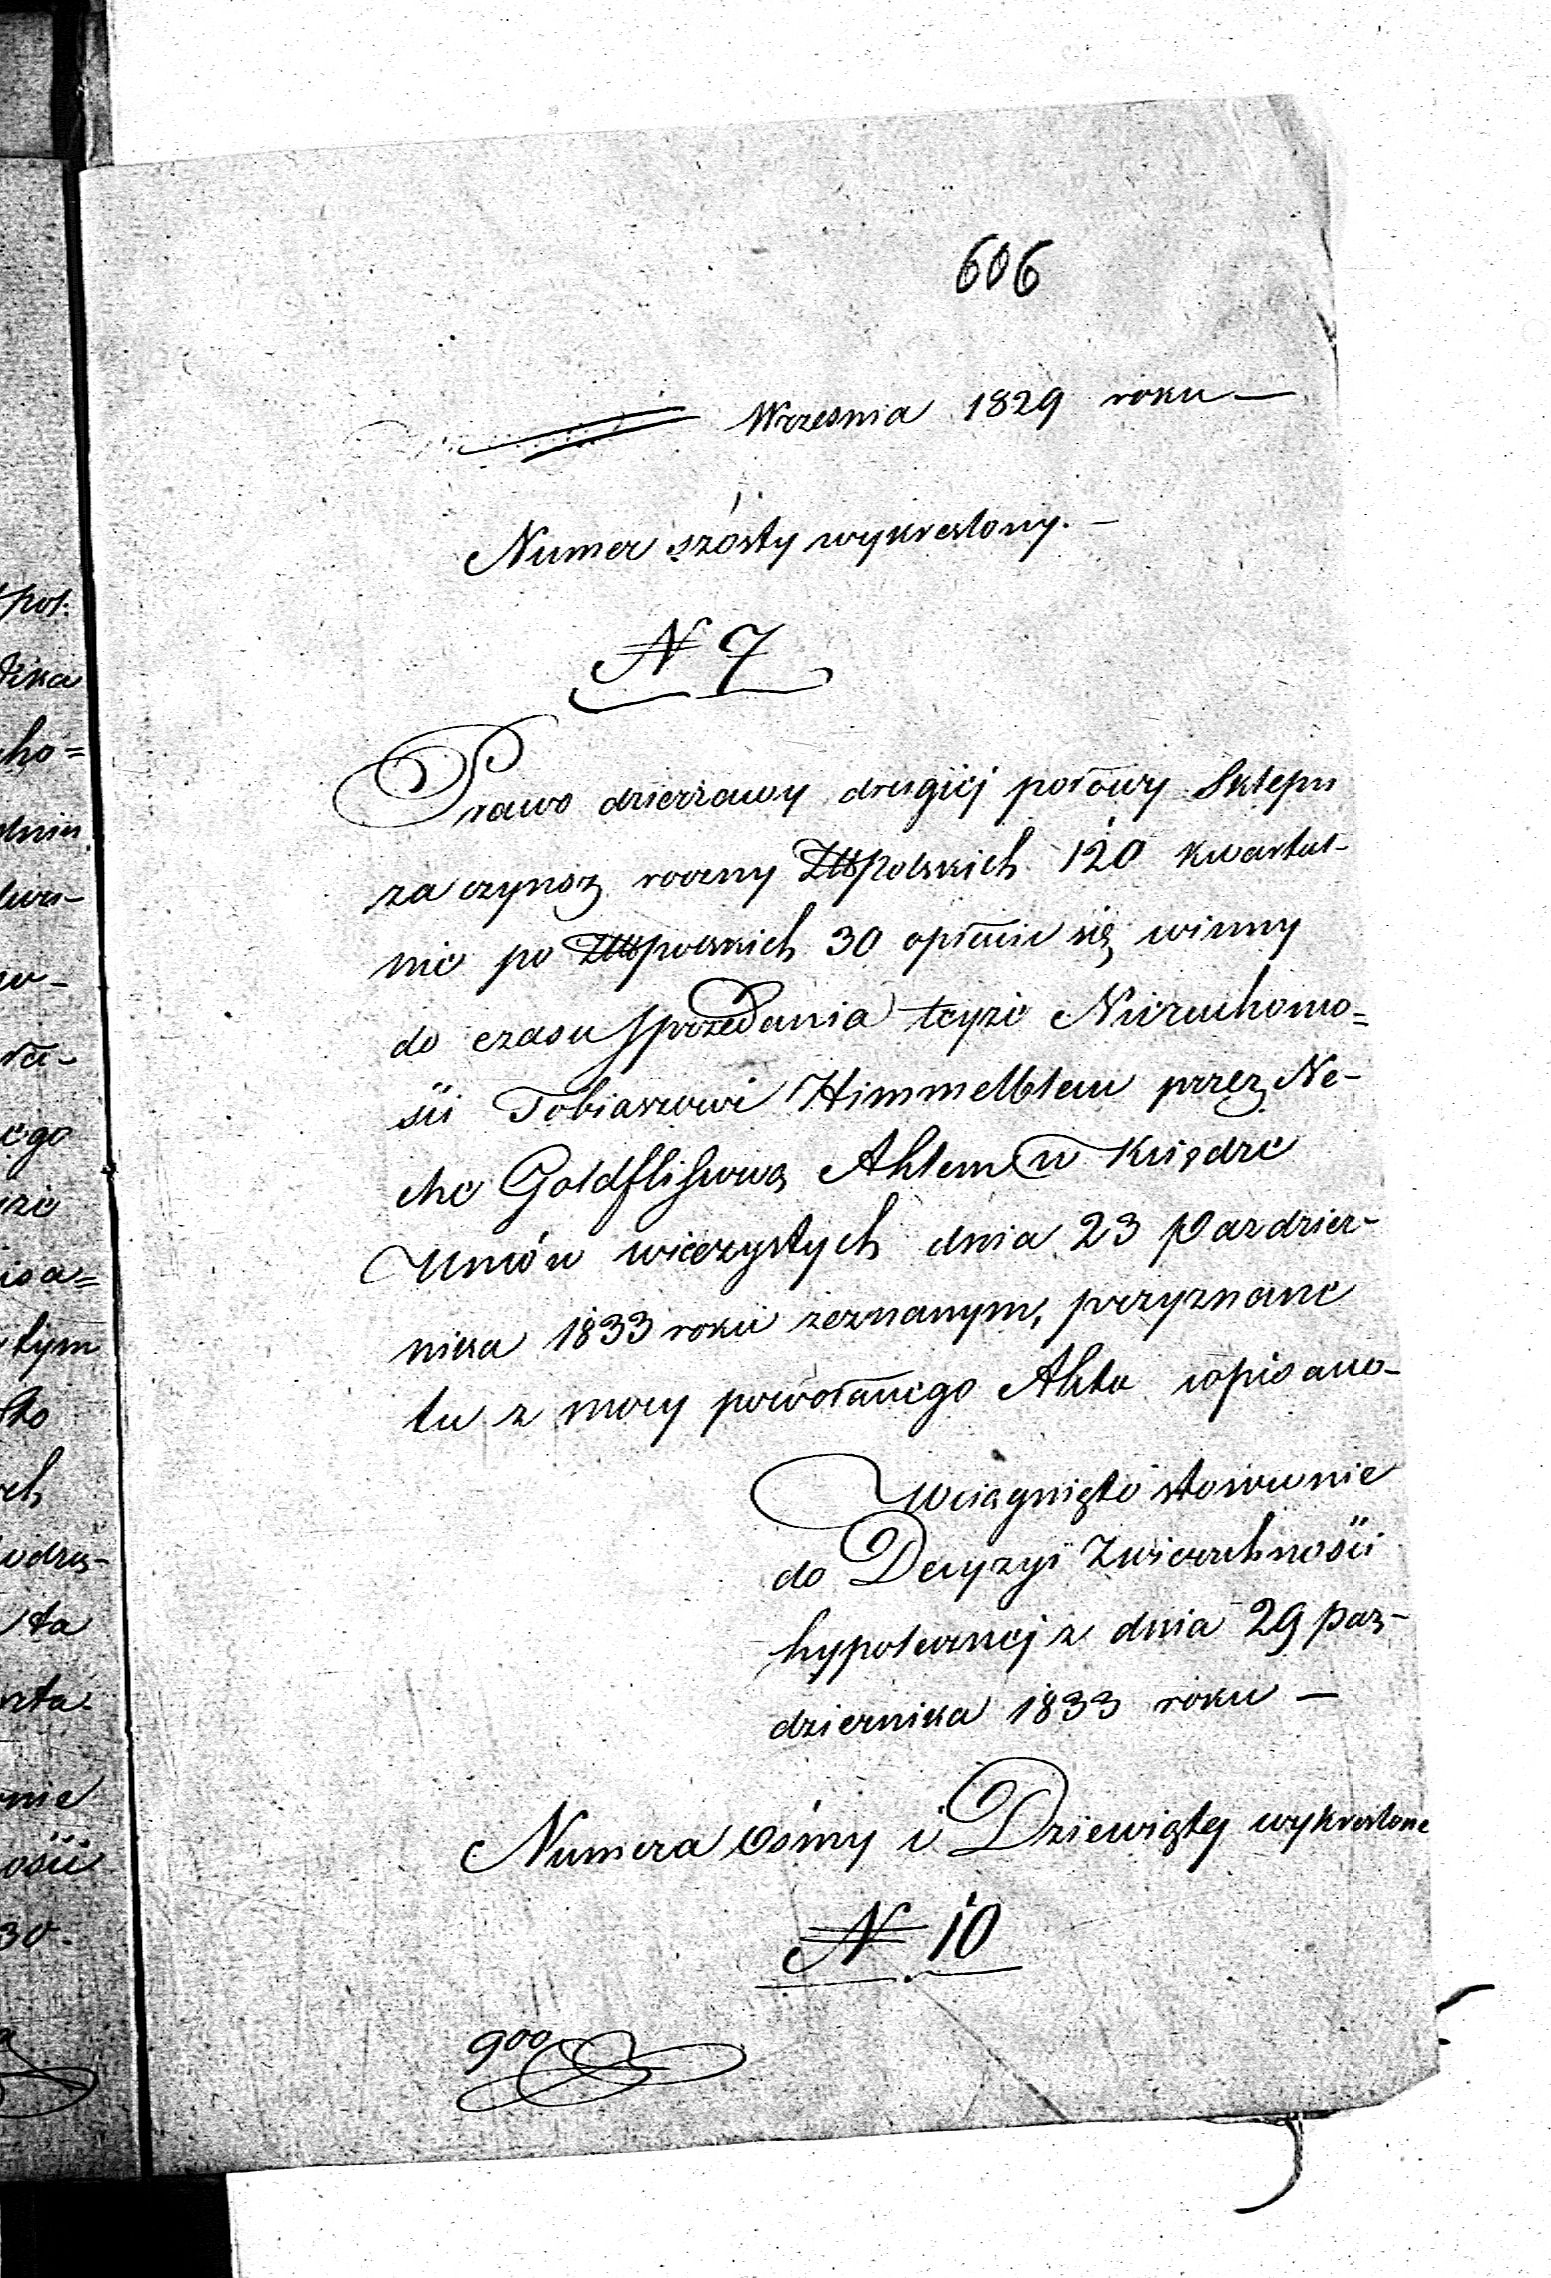 606
Września 1829 roku —
Numer szósty wykreslony. —
N 7
Prawo dzierżawy drugiej połowy Sklepu
za czynsz roczny Złł polskich 120 kwartal-
nie po Złł polskich 30 opłacać się winny
do czasu sprzedania teyże Nieruchomo=
ści Tobiaszowi Himmelblau przez Ne-
chę Goldflissową Aktem w Księdze
Umów wieczystych dnia 23 Pazdzier-
nika 1833 roku zeznanym, przyznane
tu z mocy powołanego Aktu wpisano-
Wciągnięto stosownie
do Decyzyi Zwierzchności
hypotecznej z dnia 29 paz-
dziernika 1833 roku —
Numera ósmy i Dziewiąty wykreslone
N 10
900
pol:
ho=
dniu
ego
isa=
tym
ta
nie
ości
30.